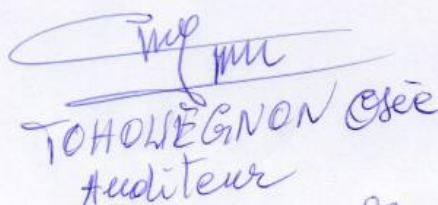 TOHOUÈGNON Osée
Auditeur